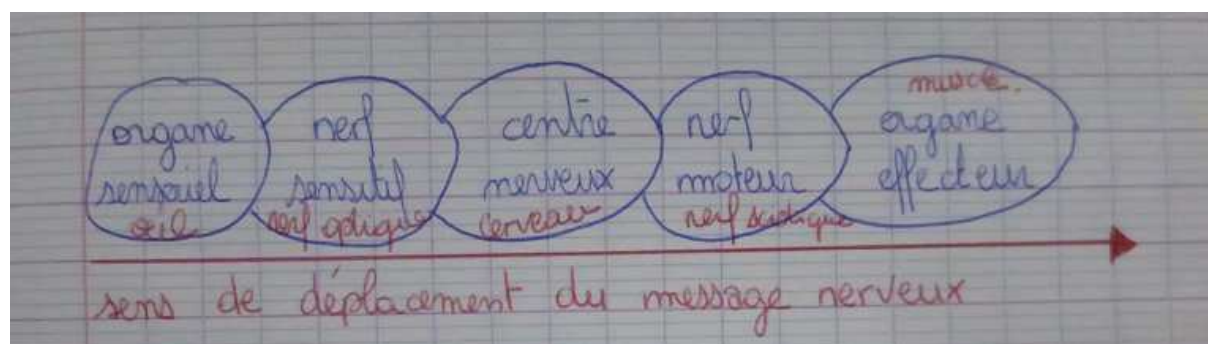 organe
sensoriel
oeil
nerf
sensitif
nerf optique
centre
nerveux
cerveau
nerf
moteur
nerf sciatique
muscle.
organe
effecteur
sens de déplacement du message nerveux